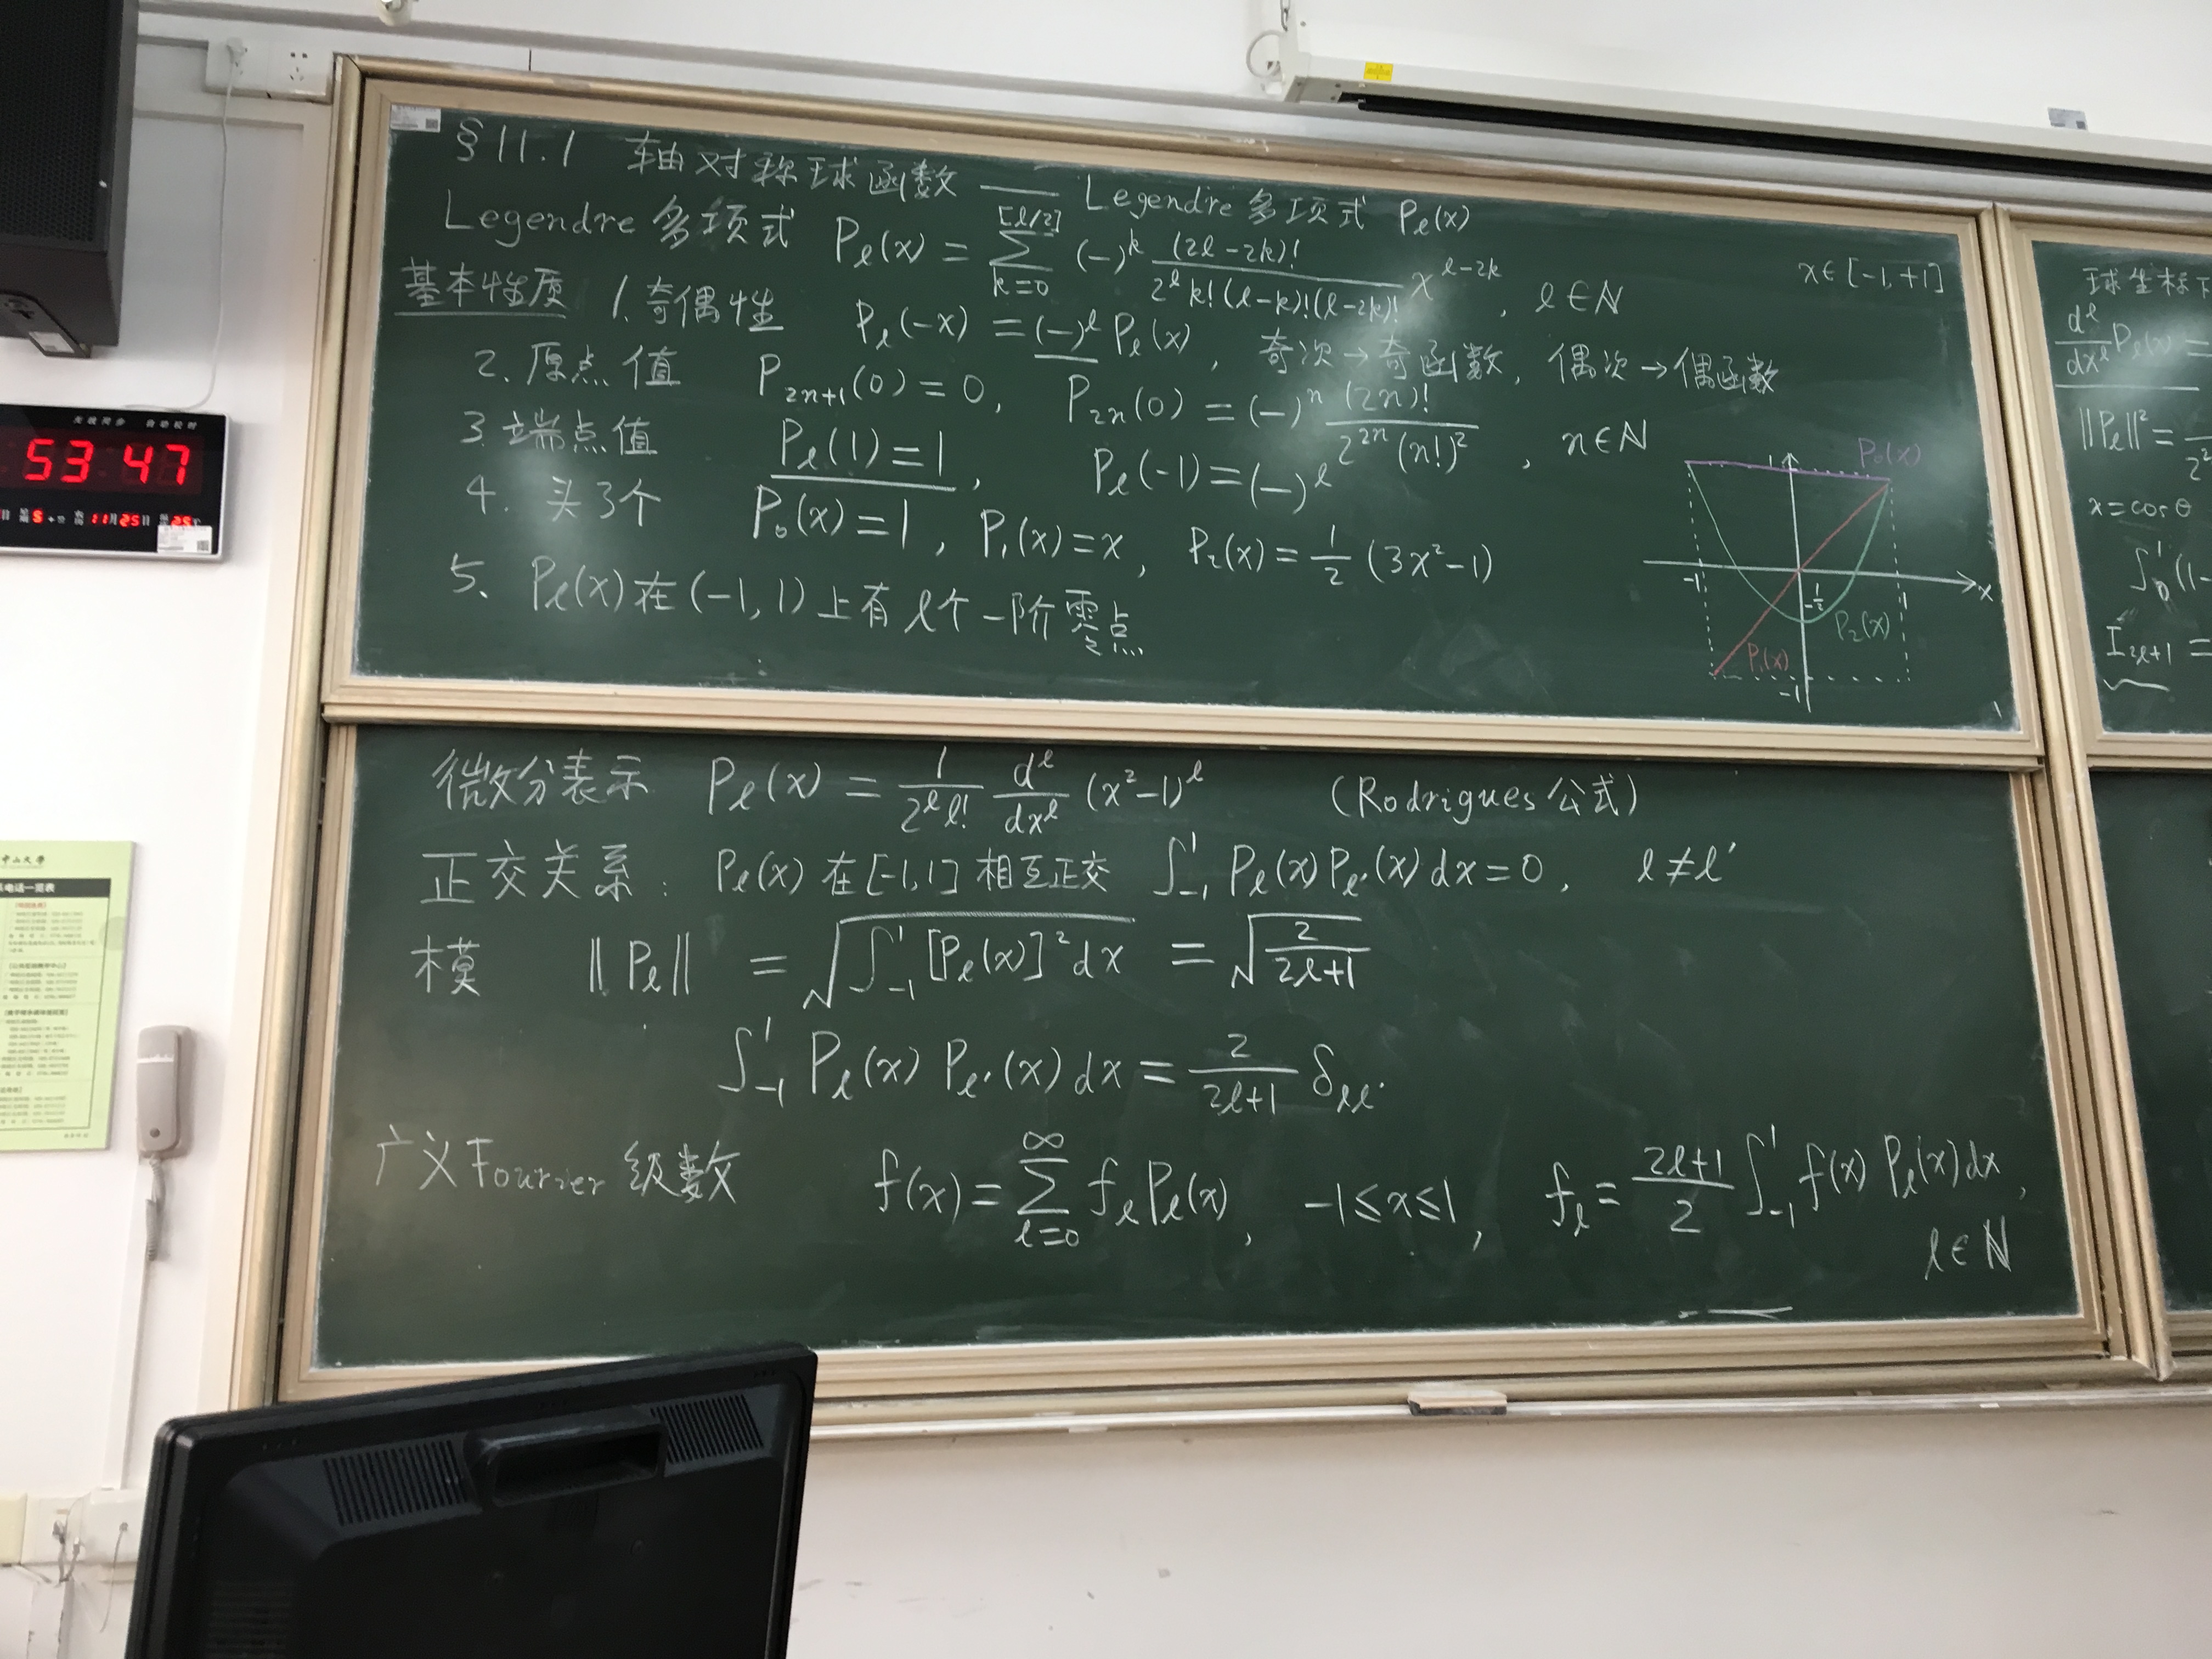 §11.1 轴对称球函数 —— Legendre多项式 Pℓ(x)
Legendre多项式 Pℓ(x) = Σ_{k=0}^{[ℓ/2]} (-)^k (2ℓ-2k)! / (2^ℓ k!(ℓ-k)!(ℓ-2k)!) x^{ℓ-2k}, ℓ∈ℕ
x∈[-1,+1]
基本性质 1.奇偶性 Pℓ(-x) = (-)^ℓ Pℓ(x), 奇次→奇函数, 偶次→偶函数
2.原点值 P_{2n+1}(0)=0, P_{2n}(0) = (-)^n (2n)! / (2^{2n}(n!)²), n∈ℕ
3.端点值 Pℓ(1)=1, Pℓ(-1)=(-)^ℓ
4. 头3个 P₀(x)=1, P₁(x)=x, P₂(x)=1/2 (3x²-1)
5. Pℓ(x)在(-1,1)上有ℓ个一阶零点
1 P₀(x)
-1 -1/2 1 x
P₂(x)
P₁(x)
-1
微分表示 Pℓ(x) = 1/(2^ℓ ℓ!) d^ℓ/dx^ℓ (x²-1)^ℓ (Rodrigues公式)
正交关系: Pℓ(x)在[-1,1]相互正交 ∫_{-1}^{1} Pℓ(x)Pℓ'(x)dx=0, ℓ≠ℓ'
模 ‖Pℓ‖ = √(∫_{-1}^{1} [Pℓ(x)]² dx) = √(2/(2ℓ+1))
∫_{-1}^{1} Pℓ(x) Pℓ'(x)dx = 2/(2ℓ+1) δ_{ℓℓ'}
广义Fourier级数 f(x)=Σ_{ℓ=0}^{∞} fℓPℓ(x), -1≤x≤1, fℓ = (2ℓ+1)/2 ∫_{-1}^{1} f(x)Pℓ(x)dx,
ℓ∈ℕ
球坐标下
d^ℓ/dx^ℓ Pℓ(x) =
‖Pℓ‖² =
x=cosθ
∫_0^1 (1-
I_{2ℓ+1} =
53 47
11月25日
中山大学
电话一览表